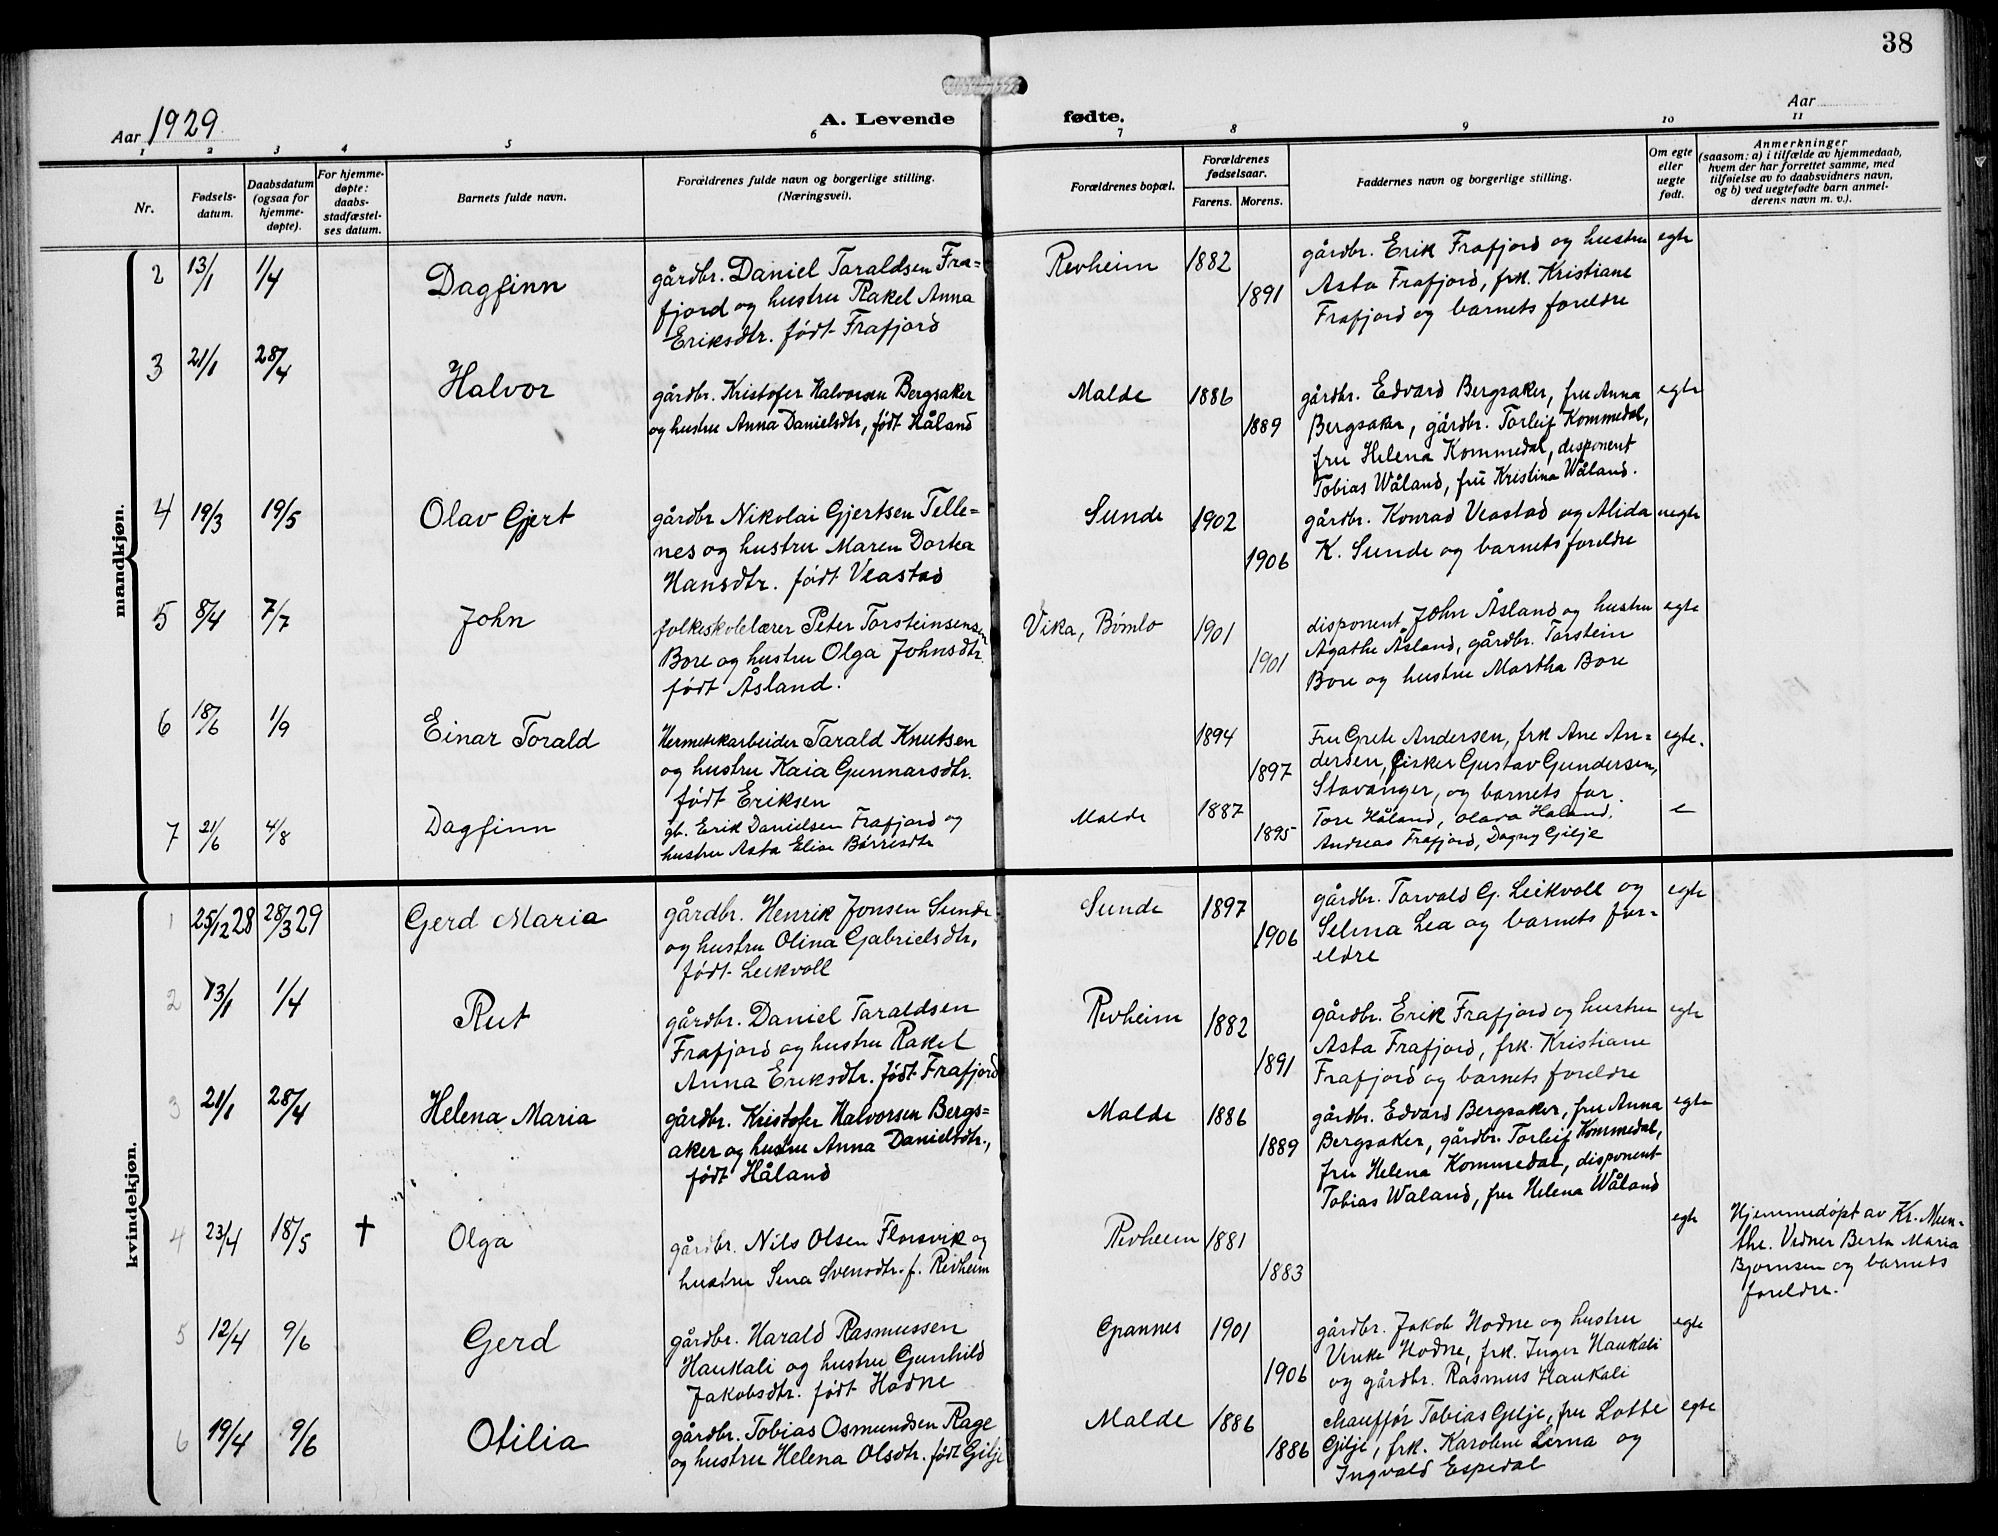 38
Aar 1929
A. Levende fødte.
Aar
1 2 3 4 5 6 7 8 9 10 11
Nr.
Fødsels-
datum.
Daabsdatum
(ogsaa for
hjemme-
døpte).
For hjemme-
døpte:
daabs-
stadfæstel-
ses datum.
Barnets fulde navn.
Forældrenes fulde navn og borgerlige stilling.
(Næringsvei).
Forældrenes bopæl.
Forældrenes
fødselsaar.
Farens. Morens.
Faddernes navn og borgerlige stilling.
Om egte
eller
uegte
født.
Anmerkninger
(saasom: a) i tilfælde av hjemmedaab,
hvem der har forrettet samme, med
tilføielse av to daabsvidners navn,
og b) ved uegtefødte barn anmel-
derens navn m. v.).
mandkjøn.
2 13/1 1/4 Dagfinn
gårdbr. Daniel Taraldsen Fra=
fjord og hustru Rakel Anna
Eriksdtr. født Frafjord
Revheim 1882 1891
gårdbr. Erik Frafjord og hustru
Asta Frafjord, frk. Kristiane
Frafjord og barnets foreldre
egte
3 21/1 28/4 Halvor
gårdbr. Kristofer Halvorsen Bergsaker
og hustru Anna Danielsdtr, født Håland
Malde 1886 1889
gårdbr. Edvard Bergsaker, fru Anna
Bergsaker, gårdbr. Torleif Kommedal,
fru Helena Kommedal, disponent
Tobias Wåland, fru Kristina Wåland.
egte
4 19/3 19/5 Olav Gjert
gårdbr Nikolai Gjertsen Telle=
nes og hustru Maren Dortea
Hansdtr. født Veastad
Sunde 1902 1906
gårdbr. Konrad Veastad og Alida
K. Sunde og barnets foreldre
uegte
5 8/4 7/7 John
folkeskolelærer Peter Torsteinsensen
Bore og hustru Olga Johnsdtr.
født Åsland.
Vika, Bømlo 1901 1901
disponent John Åsland og hustru
Agathe Åsland, gårdbr. Torstein
Bore og hustru Martha Bore
egte
6 18/6 1/9 Einar Torald
Hermetikarbeider Tarald Knutsen
og hustru Kaia Gunnarsdtr.
født Eriksen
1894 1897
Fru Grete Andersen, frk Ane An=
dersen, fisker Gustav Gundersen,
Stavanger, og barnets far.
egte.
7 21/6 4/8 Dagfinn
gb. Erik Danielsen Frafjord og
hustru Asta Elise Børresdtr
Malde 1887 1895
Tore Håland, Olava Håland,
Andreas Frafjord, Dagny Gilje
e
kvindekjøn.
1 25/12 28 28/3 29 Gerd Maria
gårdbr. Henrik Jonsen Sunde
og hustru Olina Gabrielsdtr,
født Leikvoll
Sunde 1897 1906
gårdbr. Torvald G. Leikvoll og
Selma Lea og barnets for-
eldre
egte
2 13/1 1/4 Rut
gårdbr. Daniel Taraldsen
Frafjord og hustru Rakel
Anna Eriksdtr. født Frafjord
Revheim 1882 1891
gårdbr. Erik Frafjord og hustru
Asta Frafjord, frk. Kristiane
Frafjord og barnets foreldre
egte
3 21/1 28/4 Helena Maria
gårdbr. Kristofer Halvorsen Bergs=
aker og hustru Anna Danielsdtr.,
født Håland
Malde 1886 1889
gårdbr. Edvard Bergsaker, fru Anna
Bergsaker, gårdbr. Torleif Kommedal,
fru Helena Kommedal, disponent
Tobias Waland, fru Helena Wåland
egte
4 23/4 18/5 † Olga
gårdbr. Nils Olsen Florsvik og
hustru Sina Svensdtr. f. Revheim
Revheim 1881 1883
egte
Hjemmedøpt av Kr. Mun-
the. Vidner Berta Maria
Bjørnsen og barnets
foreldre.
5 12/4 9/6 Gerd
gårdbr. Harald Rasmussen
Haukali og hustru Gunhild
Jakobsdtr. født Hodne
Grannes 1901 1906
gårdbr. Jakob Hodne og hustru
Vinke Hodne, frk. Inger Haukali
og gårdbr. Rasmus Haukali
egte
6 19/4 9/6 Otilia
gårdbr. Tobias Osmundsen Rage
og hustru Helena Olsdtr. født Gilje
Malde 1886 1886
chauffør Tobias Gilje, fru Lotte
Gilje, frk. Karoline Lima og
Ingvald Espedal
egte